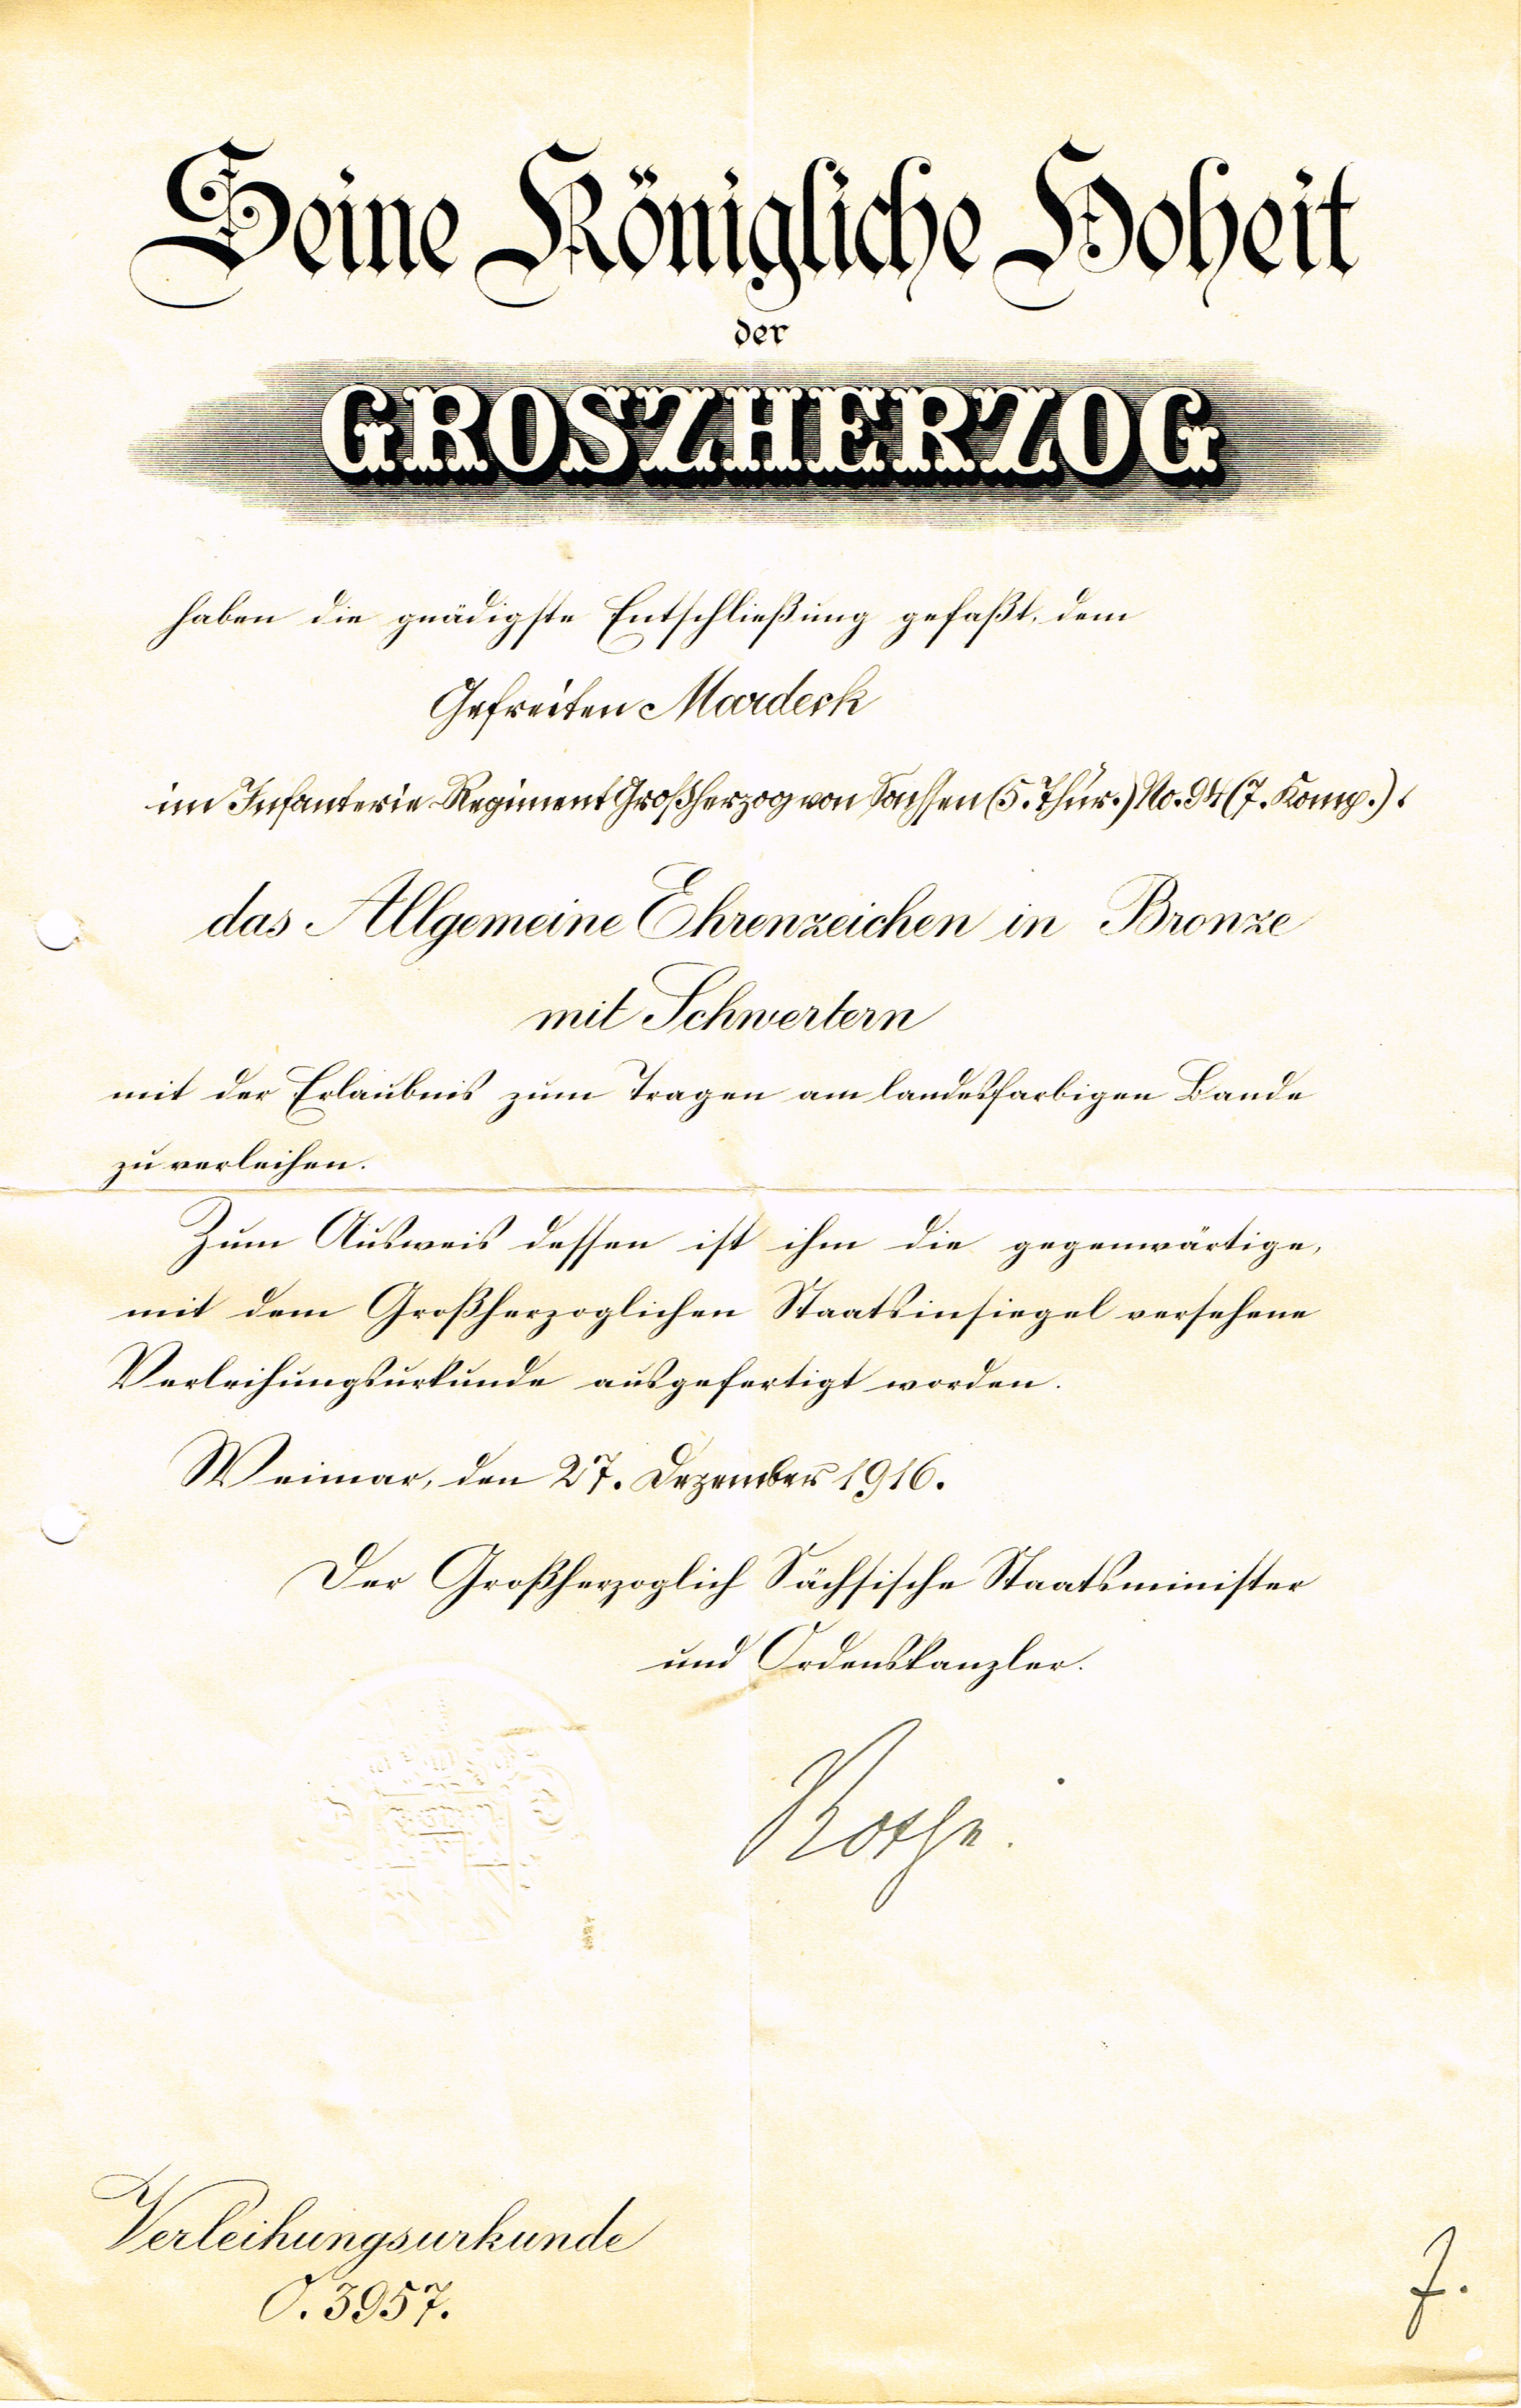 Seine Königliche Hoheit
der
GROSZHERZOG
haben die gnädigste Entschließung gefaßt, dem
Gefreiten Mardeck
im Infanterie-Regiment Großherzog von Sachsen (5. Thür.) No. 94 (7. Komp.),
das Allgemeine Ehrenzeichen in Bronze
mit Schwertern
mit der Erlaubnis zum Tragen am landesfarbigen Bande
zu verleihen.
Zum Ausweis dessen ist ihm die gegenwärtige,
mit dem Großherzoglichen Staatsinsiegel versehene
Verleihungsurkunde ausgefertigt worden.
Weimar, den 27. Dezember 1916.
Der Großherzoglich Sächsische Staatsminister
und Ordenskanzler.
Rothe.
Verleihungsurkunde
O. 3957.